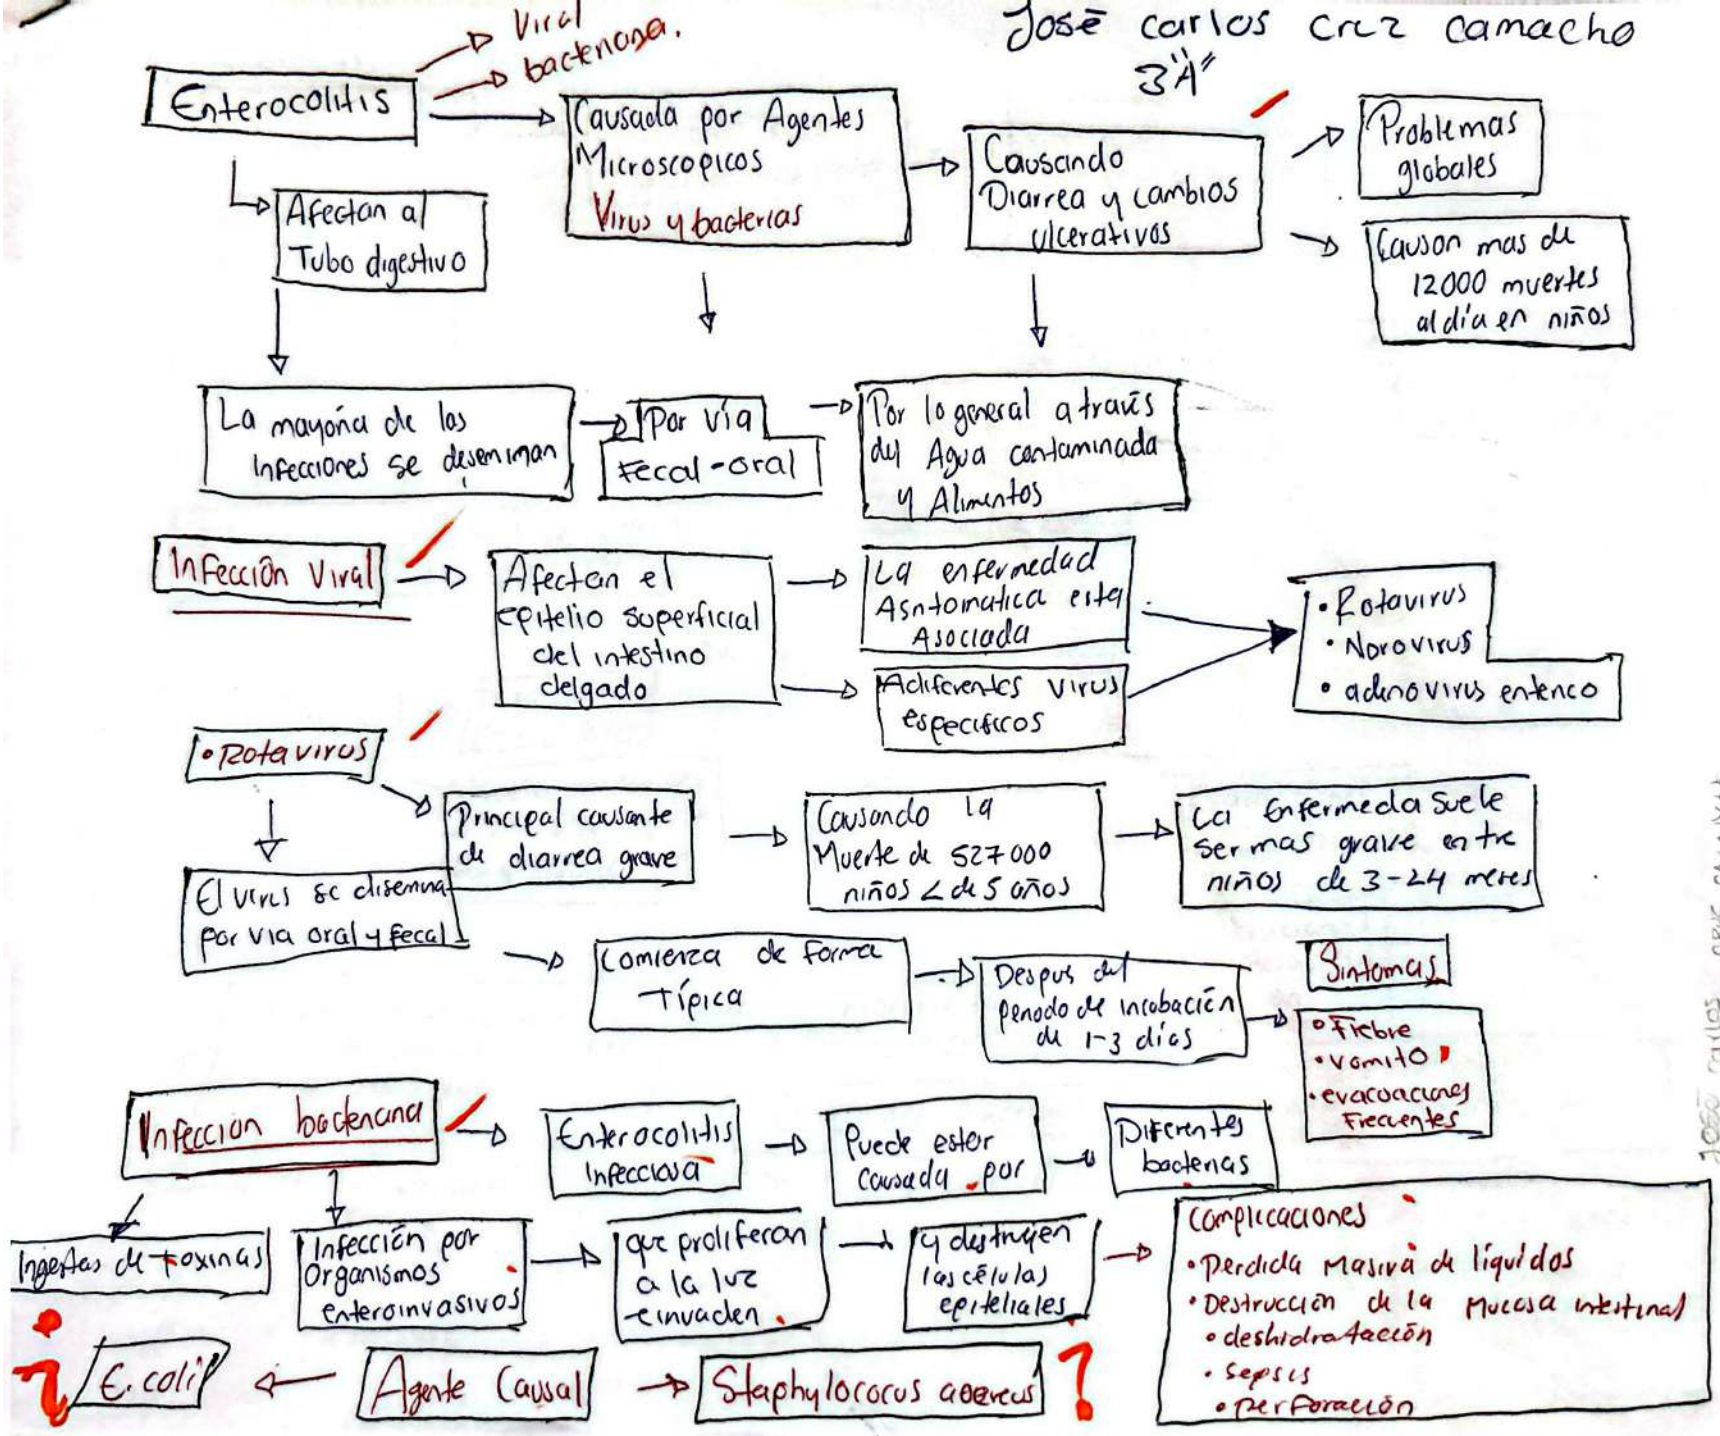 José carlos cruz camacho
3"A"
Viral
bacteriana.
Enterocolitis
Causada por Agentes
Microscopicos
Virus y bacterias
Causando
Diarrea y cambios
ulcerativos
Problemas
globales
Causan mas de
12000 muertes
al día en niños
Afectan al
Tubo digestivo
La mayoría de las
Infecciones se deseminan
Por vía
Fecal-oral
Por lo general a través
del Agua contaminada
y Alimentos
Infección Viral
Afectan el
epitelio superficial
del intestino
delgado
La enfermedad
Asntomatica esta
Asociada
A diferentes virus
especificos
• Rotavirus
• Norovirus
• adenovirus enterico
• Rotavirus
Principal causante
de diarrea grave
Causando la
Muerte de 527000
niños < de 5 años
La Enfermeda suele
ser mas grave entre
niños de 3-24 meses
El virus se disemina
por via oral y fecal
Comienza de forma
Típica
Despus del
periodo de incubación
de 1-3 días
Sintomas
• Fiebre
• vomito
• evacuaciones
Frecuentes
Infeccion bacteriana
Enterocolitis
Infecciosa
Puede estar
Causada por
Diferentes
bacterias
Ingestas de toxinas
Infección por
Organismos
enteroinvasivos
que proliferan
a la luz
e invaden
y destruyen
las células
epiteliales
Complicaciones
• Perdida Masiva de líquidos
• Destrucción de la Mucosa intestinal
• deshidratación
• sepsis
• perforación
¿ E. coli
Agente Causal
Staphylococus aoereus ?
José carlos